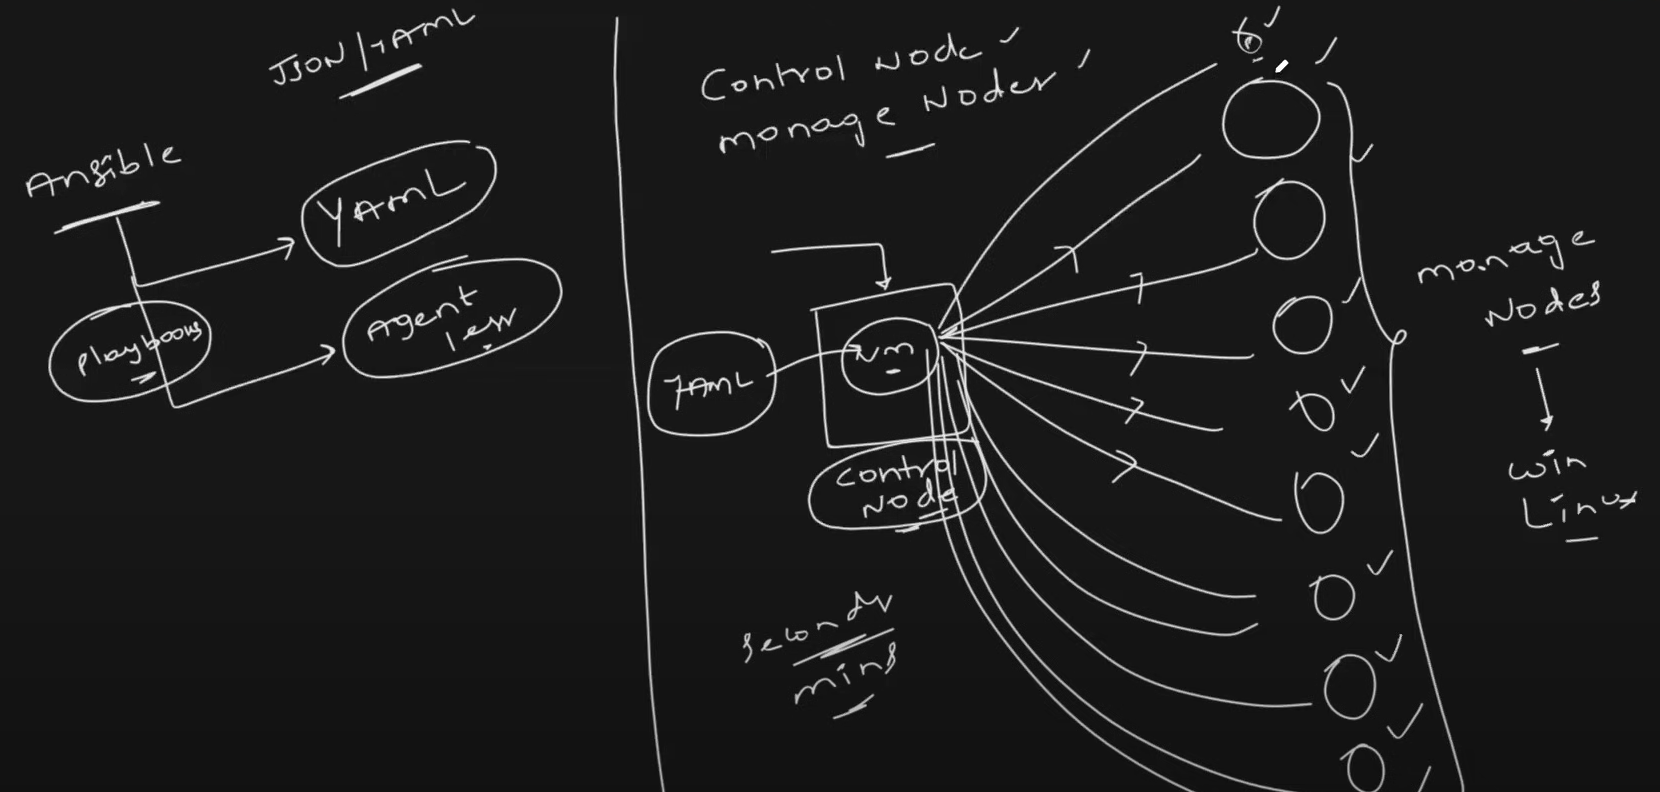 JSON/YAML
Ansible
YAML
Playbooks
Agent
less
Control Node
manage Nodes
YAML
VM
Control
Node
seconds
mins
6
manage
Nodes
win
Linux